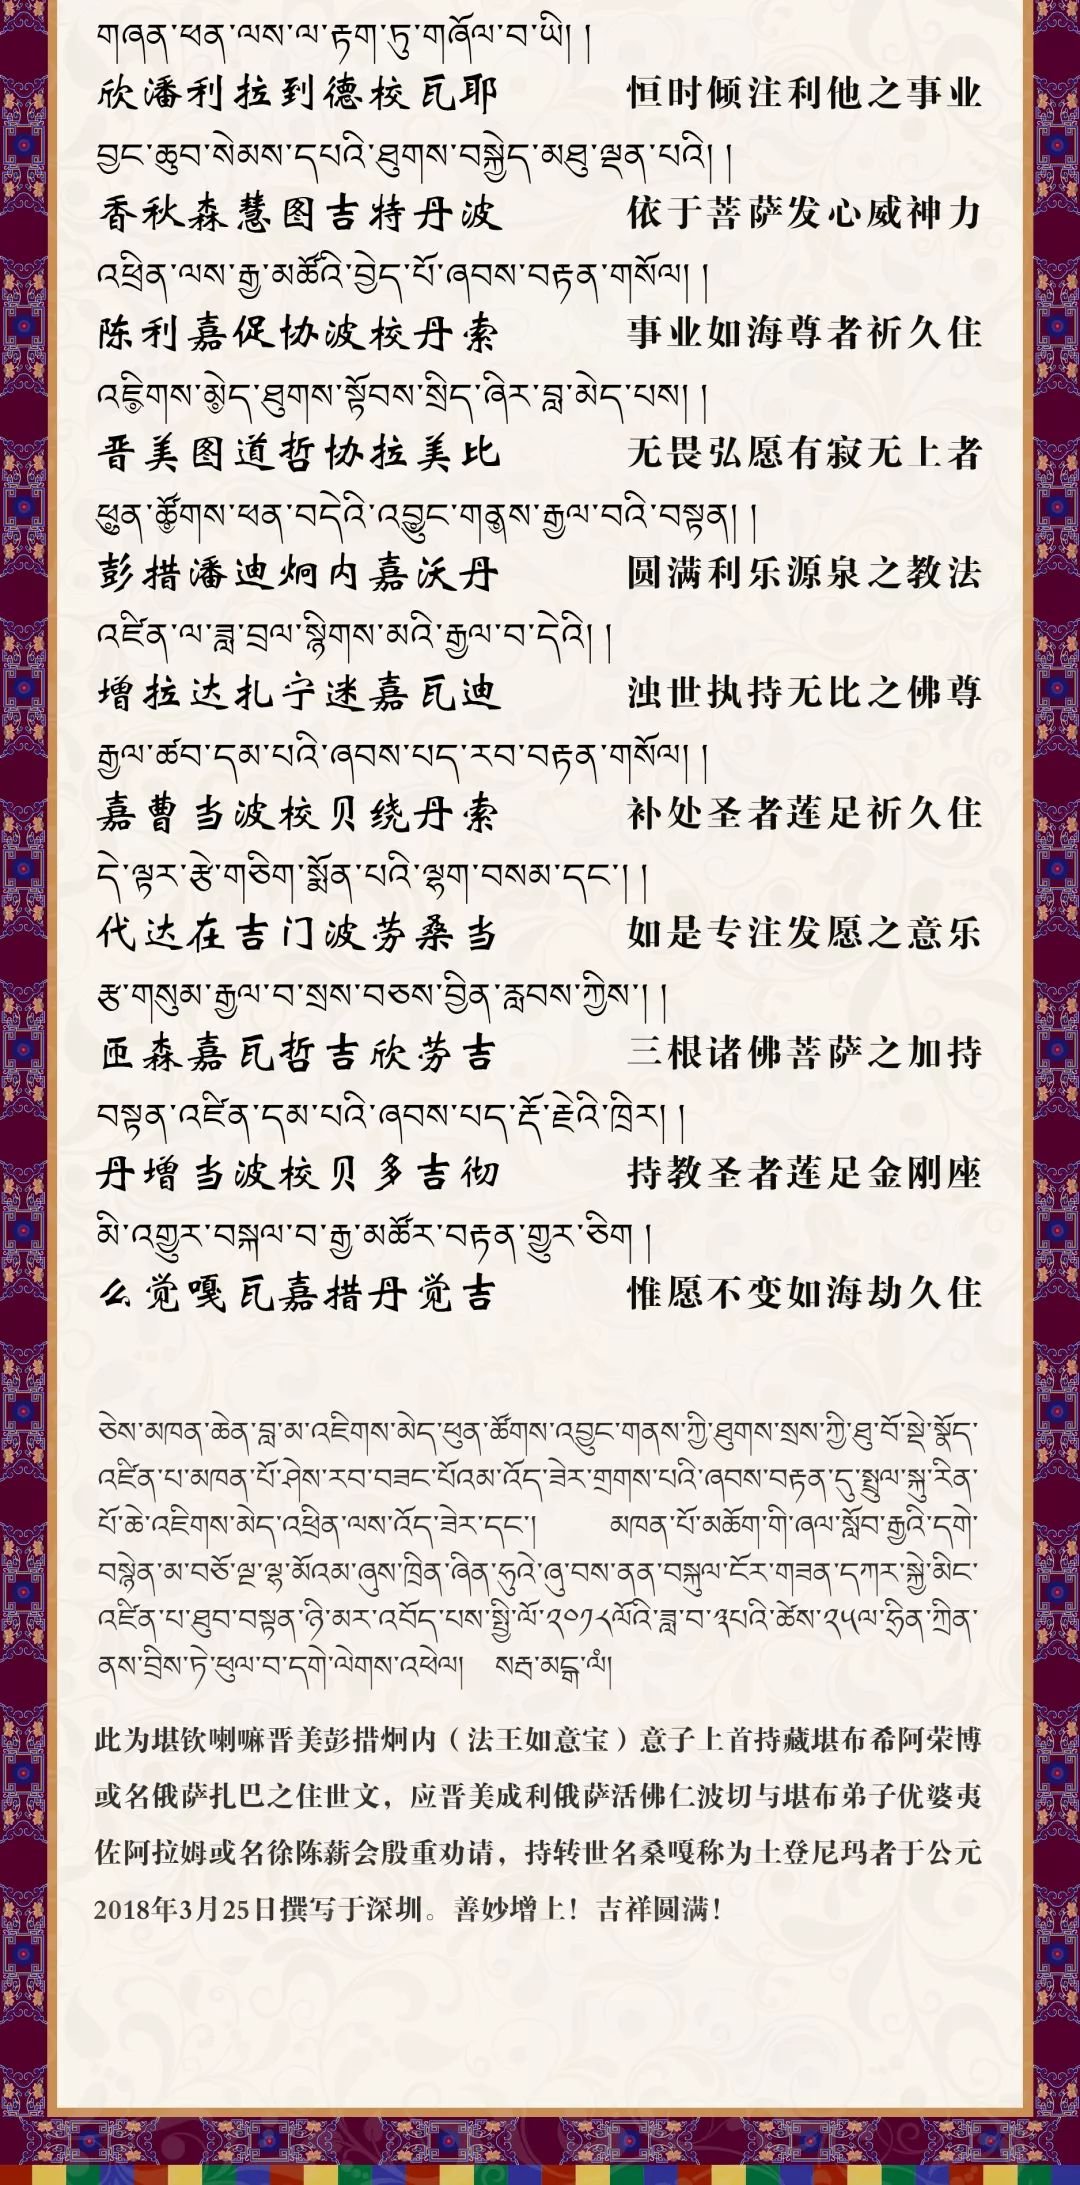 གཞན་ཕན་ལས་ལ་རྟག་ཏུ་གཞོལ་བ་ཡི། །
欣潘利拉到德校瓦耶 恒时倾注利他之事业
བྱང་ཆུབ་སེམས་དཔའི་ཐུགས་བསྐྱེད་མཐུ་ལྡན་པའི། །
香秋森慧图吉特丹波 依于菩萨发心威神力
འཕྲིན་ལས་རྒྱ་མཚོའི་བྱེད་པོ་ཞབས་བརྟན་གསོལ། །
陈利嘉促协波校丹索 事业如海尊者祈久住
འཇིགས་མེད་ཐུགས་སྟོབས་སྲིད་ཞིར་བླ་མེད་པས། །
晋美图道哲协拉美比 无畏弘愿有寂无上者
ཕུན་ཚོགས་ཕན་བདེའི་འབྱུང་གནས་རྒྱལ་བའི་བསྟན། །
彭措潘迪炯内嘉沃丹 圆满利乐源泉之教法
འཛིན་ལ་ཟླ་བྲལ་སྙིགས་མའི་རྒྱལ་བ་དེའི། །
增拉达扎宁迷嘉瓦迪 浊世执持无比之佛尊
རྒྱལ་ཚབ་དམ་པའི་ཞབས་པད་རབ་བརྟན་གསོལ། །
嘉曹当波校贝绕丹索 补处圣者莲足祈久住
དེ་ལྟར་རྩེ་གཅིག་སྨོན་པའི་ལྷག་བསམ་དང་། །
代达在吉门波劳桑当 如是专注发愿之意乐
རྩ་གསུམ་རྒྱལ་བ་སྲས་བཅས་བྱིན་རླབས་ཀྱིས་། །
匝森嘉瓦哲吉欣劳吉 三根诸佛菩萨之加持
བསྟན་འཛིན་དམ་པའི་ཞབས་པད་རྡོ་རྗེའི་ཁྲིར། །
丹增当波校贝多吉彻 持教圣者莲足金刚座
མི་འགྱུར་བསྐལ་བ་རྒྱ་མཚོར་བརྟན་གྱུར་ཅིག །
么觉嘎瓦嘉措丹觉吉 惟愿不变如海劫久住
ཅེས་མཁན་ཆེན་བླ་མ་འཇིགས་མེད་ཕུན་ཚོགས་འབྱུང་གནས་ཀྱི་ཐུགས་སྲས་ཀྱི་ཐུ་བོ་སྡེ་སྣོད་
འཛིན་པ་མཁན་པོ་ཤེས་རབ་བཟང་པོའམ་འོད་ཟེར་གྲགས་པའི་ཞབས་བརྟན་དུ་སྤྲུལ་སྐུ་རིན་
པོ་ཆེ་འཇིགས་མེད་འཕྲིན་ལས་འོད་ཟེར་དང་། མཁན་པོ་མཆོག་གི་ཞལ་སློབ་རྒྱའི་དགེ་
བསྙེན་མ་བཙོ་ལྔ་ལྷ་མོའམ་ཞུས་ཁྲིན་ཞིན་ཧུའེ་ཞུ་བས་ནན་བསྐུལ་ངོར་གཟན་དཀར་སྐྱེ་མིང་
འཛིན་པ་ཐུབ་བསྟན་ཉི་མར་འབོད་པས་སྤྱི་ལོ་༢༠༡༨ལོའི་ཟླ་བ་༣པའི་ཚེས་༢༥ལ་ཧྲིན་ཀྲིན་
ནས་བྲིས་ཏེ་ཕུལ་བ་དགེ་ལེགས་འཕེལ། སརྦ་མངྒ་ལཾ།
此为堪钦喇嘛晋美彭措炯内（法王如意宝）意子上首持藏堪布希阿荣博
或名俄萨扎巴之住世文，应晋美成利俄萨活佛仁波切与堪布弟子优婆夷
佐阿拉姆或名徐陈薪会殷重劝请，持转世名桑嘎称为土登尼玛者于公元
2018年3月25日撰写于深圳。善妙增上！吉祥圆满！